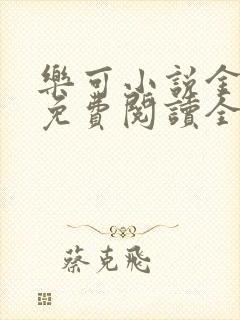 樂可小说全
免費閱讀全
蔡克飛